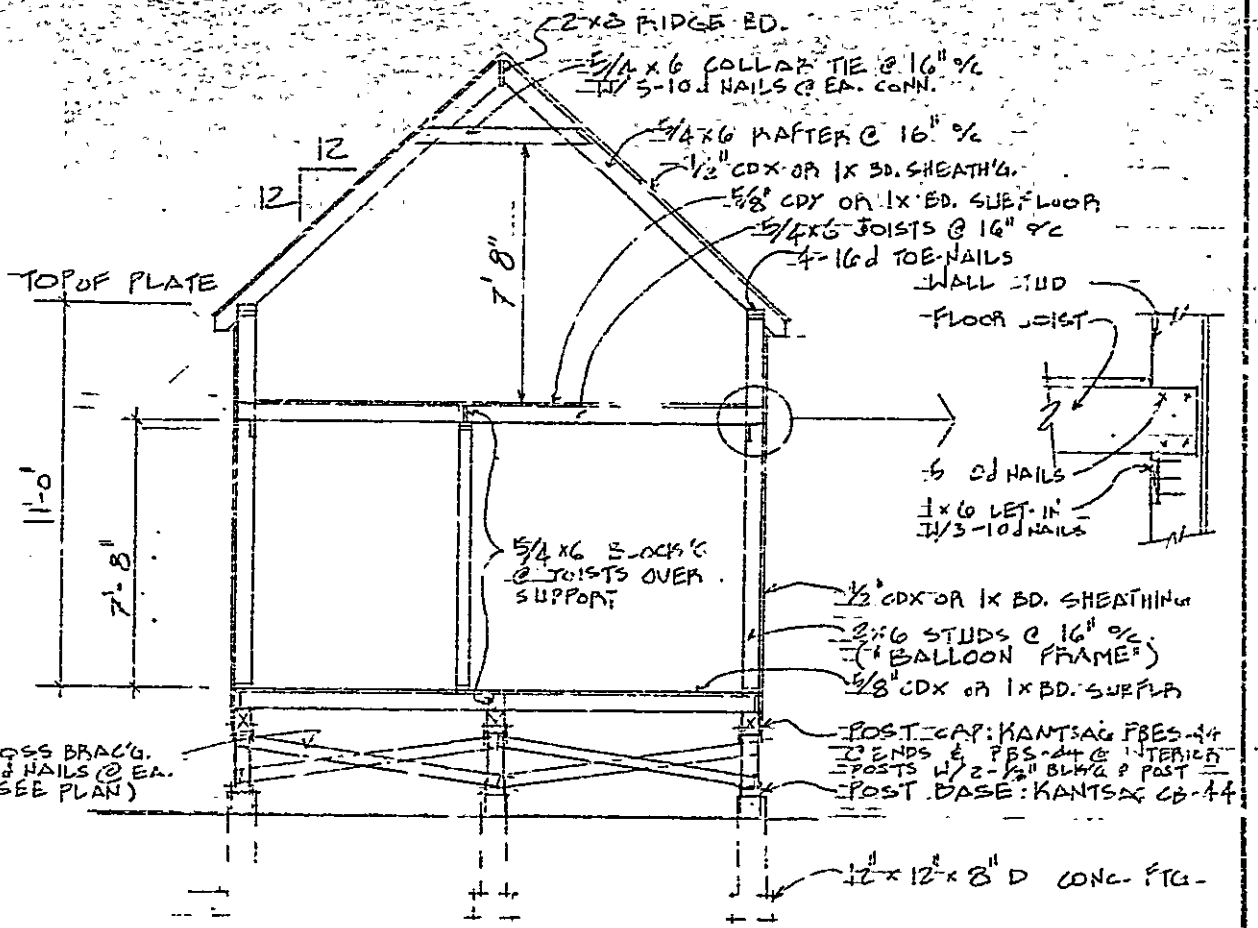 2x8 RIDGE BD.
5/4 x 6 COLLAR TIE @ 16" o/c
W/ 5-10d NAILS @ EA. CONN.
5/4x6 RAFTER @ 16" o/c
1/2" CDX OR 1X BD. SHEATH'G.
5/8" CDX OR 1X BD. SUBFLOOR
5/4x6 JOISTS @ 16" o/c
4-16d TOE-NAILS
12
12
TOP OF PLATE
WALL STUD
FLOOR JOIST
7'8"
11'-0"
7'-8"
5 d NAILS
1x6 LET-IN
W/3-10d NAILS
5/4 x6 BLOCK'G
@ JOISTS OVER
SUPPORT
1/2" CDX OR 1X BD. SHEATHING
2x6 STUDS @ 16" o/c.
("BALLOON FRAME")
5/8" CDX OR 1X BD. SUBFLR
OSS BRAC'G.
NAILS @ EA.
SEE PLAN)
POST CAP: KANTSAG PBES-44
@ ENDS & PBS-44 @ INTERIOR
POSTS W/ 2-1/2" BLK'G @ POST
POST BASE: KANTSAG CB-44
12" x 12" x 8" D CONC. FTG.